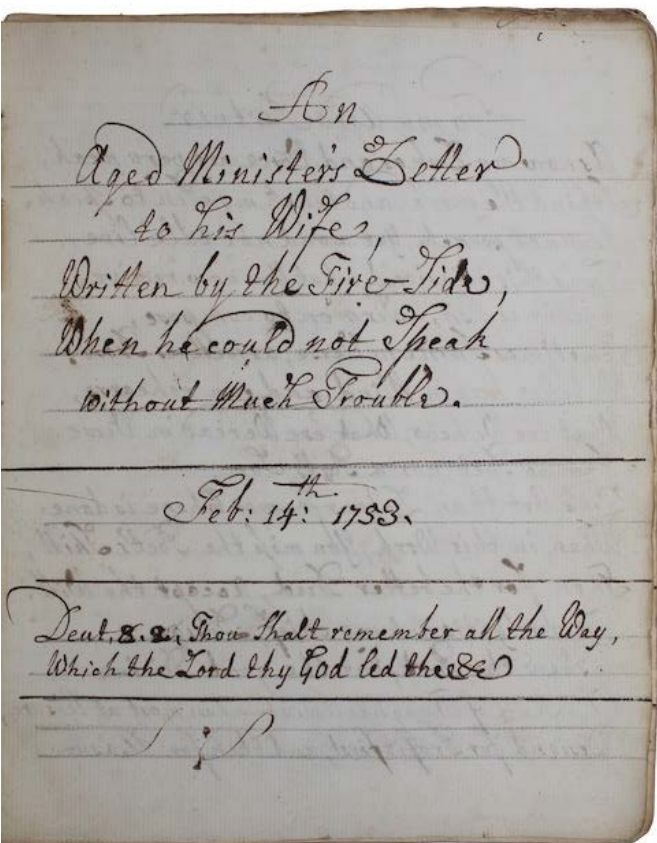 An
Aged Ministers Letter
to his Wife,
Written by the Fire-Side,
When he could not Speak
without Much Trouble.
Feb: 14:th 1753.
Deut, 8. 2, Thou Shalt remember all the Way,
Which the Lord thy God led thee &c